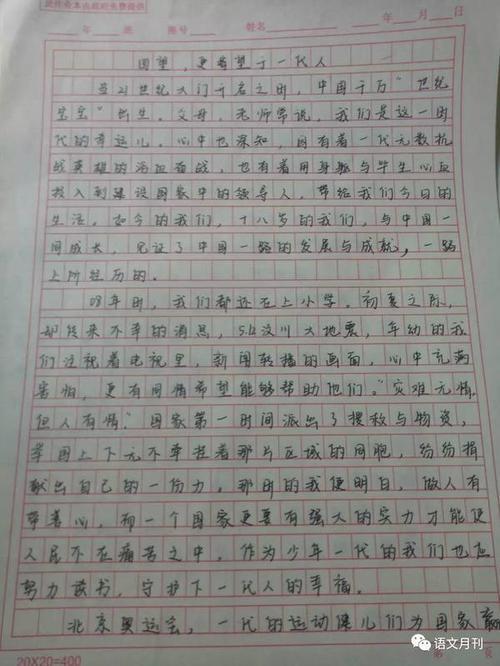 此作业本由政府免费提供
年 班 图号 姓名 年 月 日
回望,更希望于一代人
当21世纪大门千名之时,中国千万"世纪
宝宝"出生。父母,老师常说,我们是这一时
代的幸运儿。心中也深知,因有着一代无数抗
战英雄的浴血奋战,也有着用身躯与毕生心血
投入到建设国家中的领导人,带给我们今日的
生活。如今的我们,十八岁的我们,与中国一
同成长,见证了中国一路的发展与成就,一路
上所经历的。
08年时,我们都还在上小学。初夏之际,
却传来不幸的消息,5.12汶川大地震,年幼的我
们注视着电视里,新闻转播的画面,心中充满
害怕,更有同情希望能够帮助他们。"灾难无情
但人有情."国家第一时间派出了搜救与物资,
举国上下无不牵挂着那片区域的同胞,纷纷捐
献出自己的一份力。那时的我便明白,做人有
带善心,而一个国家更要有强大的实力才能使
人民不在痛苦之中,作为少年一代的我们也应
努力读书,守护下一代人的幸福。
北京奥运会,一代的运动健儿们为国家赢
20X20=400
第 页
语文月刊